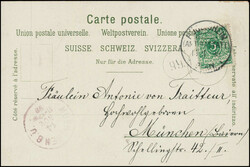 Carte postale.
Union postale universelle. Weltpostverein. Unione postale
SUISSE. SCHWEIZ. SVIZZERA
Nur für die Adresse.
Côté réservé à l'adresse.
Fräulein Antonie von Traitteur,
München (Baiern)
Schellingstr. 42/II.